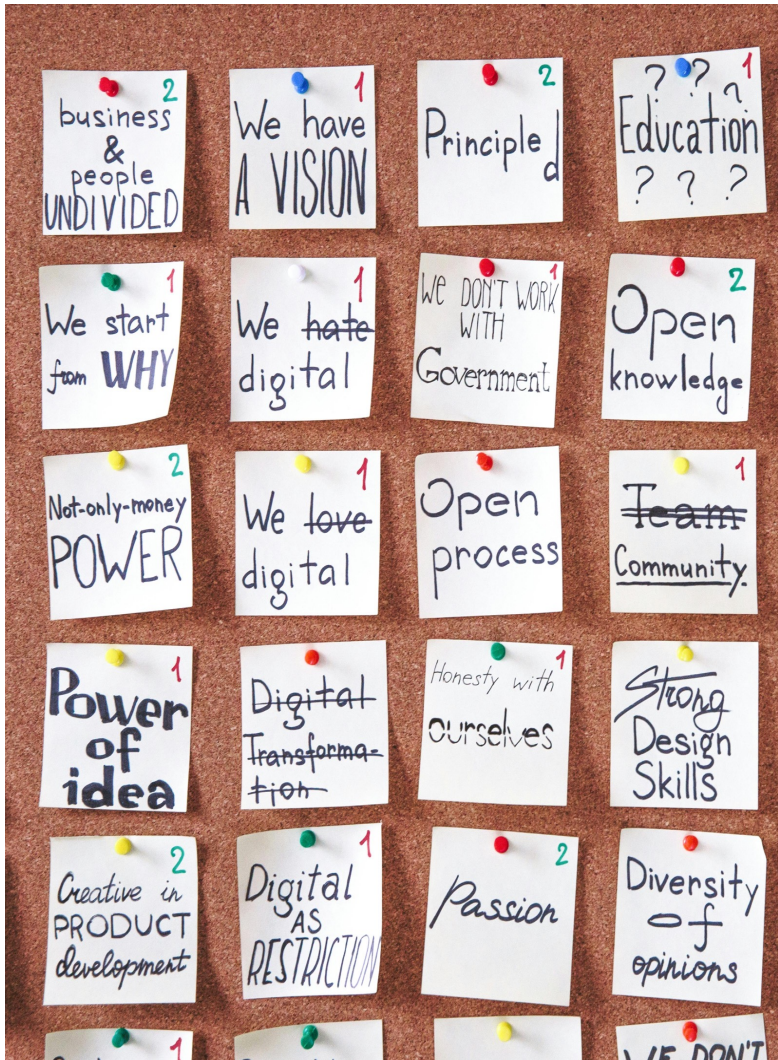 2
business
&
people
UNDIVIDED
1
We have
A VISION
2
Principled
1
? ? ?
Education
? ? ?
1
We start
from WHY
1
We hate
digital
1
We DON'T WORK
WITH
Government
2
Open
knowledge
2
Not-only-money
POWER
1
We love
digital
Open
process
1
Team
Community.
1
Power
of
idea
Digital
Transforma-
tion
1
Honesty with
ourselves
Strong
Design
Skills
2
Creative in
PRODUCT
development
1
Digital
AS
RESTRICTION
2
Passion
Diversity
of
opinions
1
WE DON'T